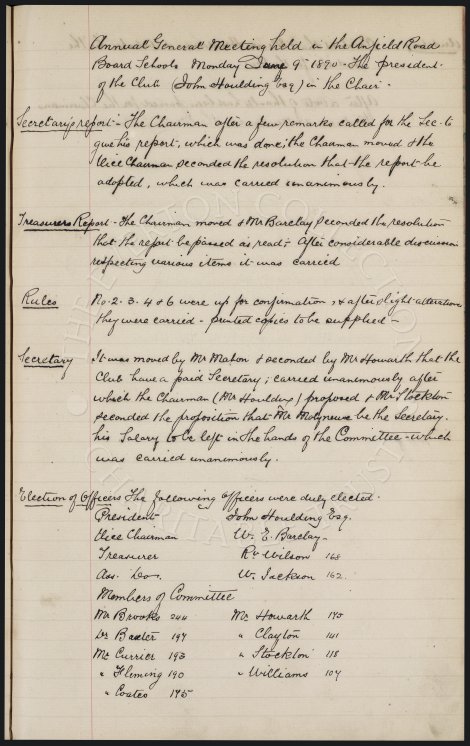 Annual General Meeting held in the Anfield Road
Board Schools Monday June 9th 1890 - The president
of the Club (John Houlding Esq) in the Chair -
Secretary's report - The Chairman after a few remarks called for the Sec. to
give his report, which was done; the Chairman moved & the
Vice Chairman seconded the resolution that the report be
adopted, which was carried unanimously.
Treasurers Report - The Chairman moved & Mr Barclay seconded the resolution
that the report be passed as read; After considerable discussion
respecting various items it was carried
Rules No. 2. 3. 4 & 6 were up for confirmation, & after slight alterations
they were carried - printed copies to be supplied -
Secretary It was moved by Mr Mahon & seconded by Mr Howarth that the
Club have a paid Secretary; carried unanimously after
which the Chairman (Mr Houlding) proposed & Mr Stockton
seconded the proposition that Mr Molyneux be the Secretary.
his Salary to be left in the hands of the Committee - which
was carried unanimously.
Election of Officers The following Officers were duly elected.
President John Houlding Esq.
Vice Chairman W. E. Barclay
Treasurer Rd Wilson 168
Ass. Do. W. Jackson 162.
Members of Committee
Mr Brooks 244 Mr Howarth 175
Dr Baxter 197 " Clayton 141
Mr Currier 193 " Stockton 118
" Fleming 190 " Williams 107
" Coates 175
THE EVERTON COLLECTION
CHARITABLE TRUST